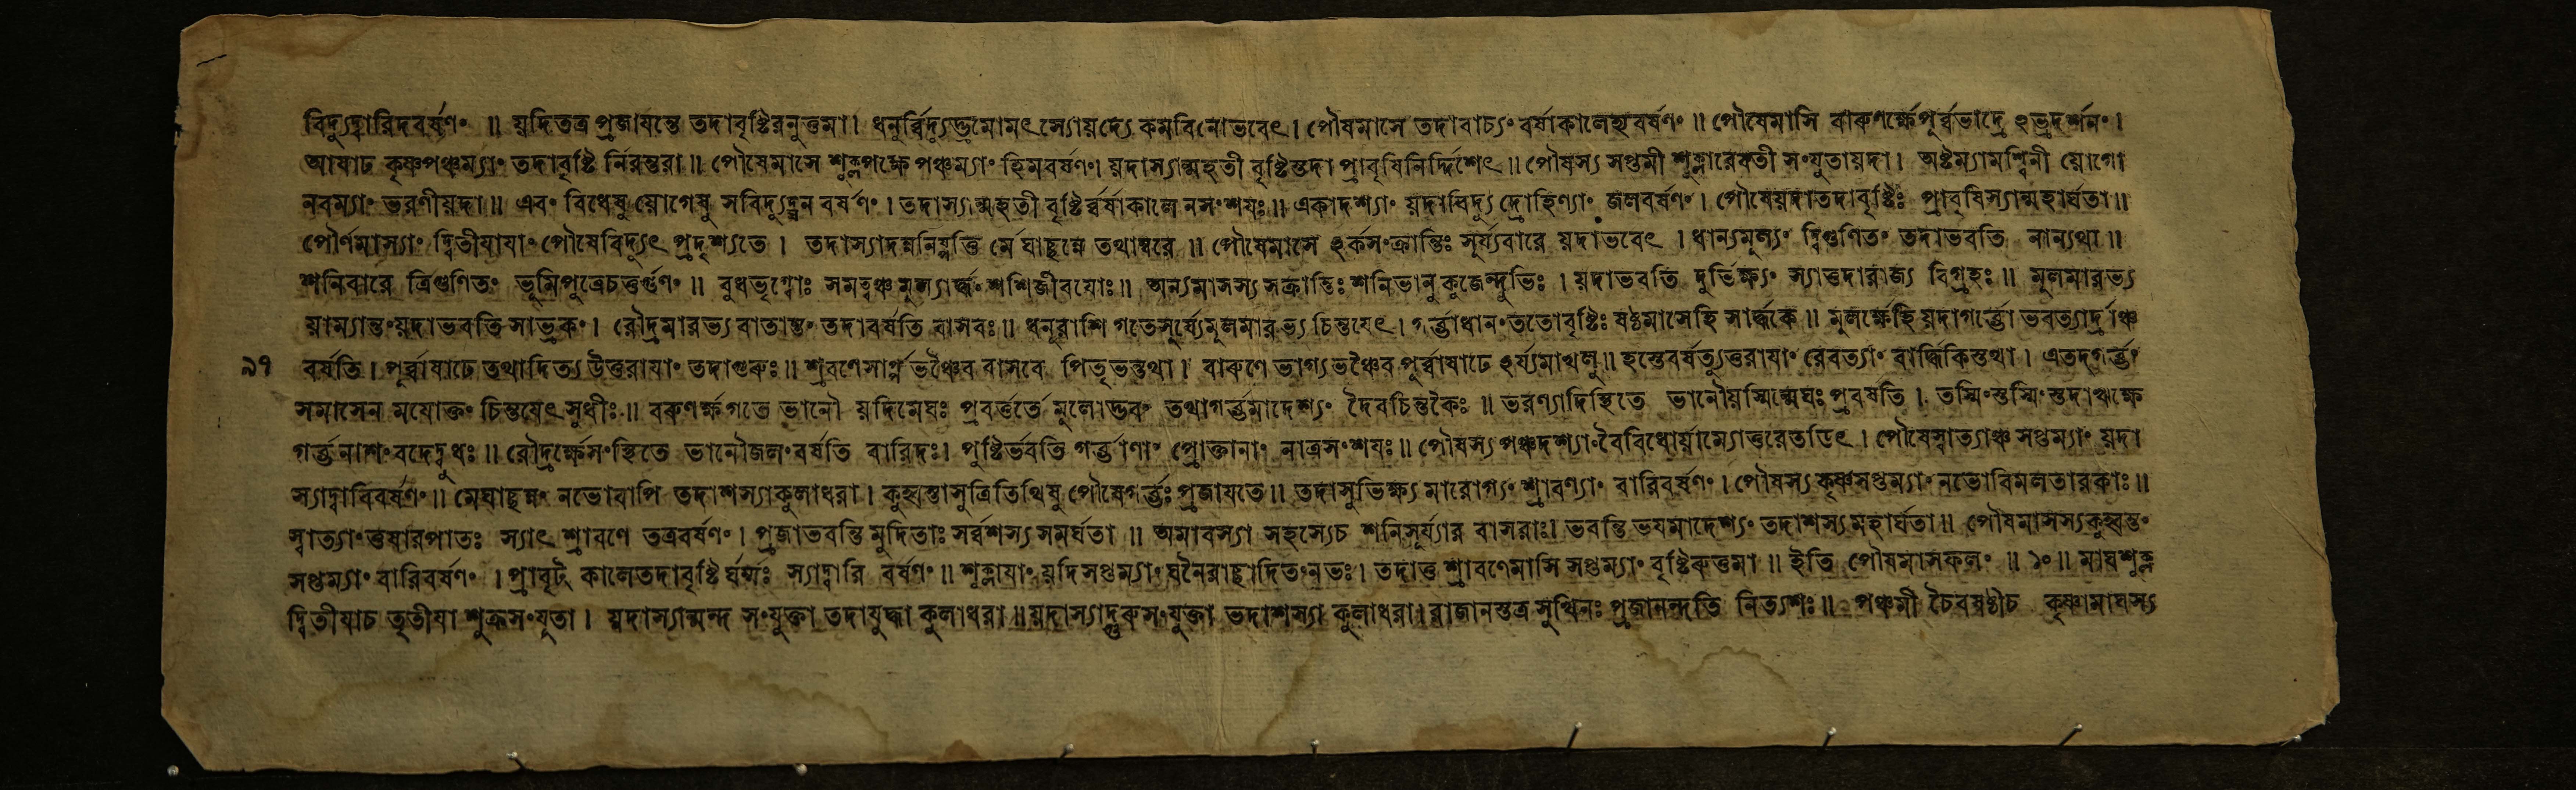 বিদ্যুদ্বারিদবর্ষণং ॥ য়দিতত্র প্রজাযন্তে তদাবৃষ্টিরনুত্তমা। ধনুর্ব্বিদ্যুত্তমোমৎস্যোয়দ্যেকমবিনোভবেৎ। পৌষমাসে তদাবাচ্যং বর্ষাকালেহ্নবর্ষণং ॥ পৌষেমাসি বারুণর্ক্ষেপূর্ব্বভাদ্রে ঽভ্রদর্শনং।
আষাঢ কৃষ্ণপঞ্চম্যাং তদাবৃষ্টি র্নিরন্তরা ॥ পৌষেমাসে শুক্লপক্ষে পঞ্চম্যাং হিমবর্ষণং। য়দাস্যান্মহতী বৃষ্টিস্তদা প্রাবৃষিনির্দ্দিশেৎ ॥ পৌষস্য সপ্তমী শুক্লারেবতী সংযুতায়দা। অষ্টম্যামশ্বিনী য়োগো
নবম্যাং ভরণীয়দা ॥ এবং বিধেষু য়োগেষু সবিদ্যুদ্ঘন বর্ষণং। তদাস্যান্মহতী বৃষ্টির্ব্বর্ষাকালে নসংশযঃ ॥ একাদশ্যাং য়দাবিদ্যুদ্রোহিণ্যাং জলবর্ষণং। পৌষেয়দাতদাবৃষ্টিঃ প্রাবৃষিস্যান্মহার্ঘতা ॥
পৌর্ণমাস্যাং দ্বিতীযাযাং পৌষেবিদ্যুৎ প্রদৃশ্যতে। তদাস্যাদন্ননিষ্পত্তি র্মেঘাচ্ছন্নে তথাম্বরে ॥ পৌষেমাসে ঽর্কসংক্রান্তিঃ সূর্য্যবারে য়দাভবেৎ। ধান্যমূল্যং দ্বিগুণিতং তদাভবতি নান্যথা ॥
শনিবারে ত্রিগুণিতং ভূমিপুত্রেচতুর্গুণং ॥ বুধভৃগ্বোঃ সমত্বঞ্চমূল্যার্দ্ধং শশিজীবযোঃ ॥ অন্যমাসস্য সংক্রান্তিঃ শনিভানু কুজেন্দুভিঃ। য়দাভবতি দুর্ভিক্ষ্যং স্যাত্তদারাজ্য বিগ্রহঃ ॥ মূলমারভ্য
য়াম্যান্তং য়দাভবতি সাভ্রকং। রৌদ্রমারভ্য বাতান্তং তদাবর্ষতি বাসবঃ ॥ ধনূরাশি গতেসূর্য্যেমূলমারভ্য চিন্তযেৎ। গর্ত্তাধানং ততোবৃষ্টিঃ ষষ্ঠমাসেহি সার্দ্ধকে ॥ মূলর্ক্ষেহি য়দাগর্ত্তো ভবত্যার্দ্রাঞ্চ
৯৭ বর্ষতি। পূর্ব্বাষাঢে তথাদিত্য উত্তরাযাং তদাগুরুঃ ॥ শ্রবণেসার্প্পভঞ্চৈব বাসবে পিতৃভন্তথা। বারুণে ভাগ্যভঞ্চৈব পূর্ব্বাষাঢে ঽর্য্যমাখলু ॥ হস্তেবর্ষত্যুত্তরাযাং রেবত্যাং বার্দ্ধিকিস্তথা। এতদ্গর্ত্তং
সমাসেন মযোক্তং চিন্তযেৎ সুধীঃ ॥ বরুণর্ক্ষগতে ভানৌ য়দিমেঘঃ প্রবর্ত্ততে মূলোদ্ভবং তথাগর্ত্তমাদেশ্যং দৈবচিন্তকৈঃ ॥ ভরণ্যাদিস্থিতে ভানৌয়স্মিন্মেঘঃ প্রবর্ষতি। তস্মিংস্তস্মিং স্তদাঋক্ষে
গর্ত্তনাশং বদেদ্বুধঃ ॥ রৌদ্রর্ক্ষেসংস্থিতে ভানৌজলং বর্ষতি বারিদঃ। পুষ্টির্ভবতি গর্ত্তাণাং প্রোক্তানাং নাত্রসংশযঃ ॥ পৌষস্য পঞ্চদশ্যাং বৈবিধোর্য়াম্যোত্তরেতডিৎ। পৌষেস্বাত্যাঞ্চ সপ্তম্যাং য়দা
স্যাদ্বারিবর্ষণং ॥ মেঘাচ্ছন্নং নভোবাপি তদাশস্যাকুলাধরা। কুহ্বান্তাসুত্রিতিথিষু পৌষেগর্ত্তঃ প্রজাযতে ॥ তদাসুভিক্ষ্যমারোগ্যং শ্রাবণ্যাং বারিবর্ষণং। পৌষস্য কৃষ্ণসপ্তম্যাং নভোবিমলতারকাঃ ॥
স্বাত্যাংতুষারপাতঃ স্যাৎ শ্রাবণে তত্রবর্ষণং। প্রজাভবন্তি মুদিতাঃ সর্ব্বশস্য সমর্ঘতা ॥ অমাবস্যা সহস্যেচ শনিসূর্য্যার বাসরাঃ। ভবন্তি ভযমাদেশ্যং তদাশস্যমহার্ঘতা ॥ পৌষমাসস্যকুহ্বন্তং
সপ্তম্যাং বারিবর্ষণং। প্রাবৃট্ কালেতদাবৃষ্টি র্ঘর্ম্মঃ স্যাদ্বারি বর্ষণং ॥ শুক্লাযাং য়দিসপ্তম্যাং ঘনৈরাচ্ছাদিতংনভঃ। তদাতু শ্রাবণেমাসি সপ্তম্যাং বৃষ্টিরুত্তমা ॥ ইতি পৌষমাসফলং ॥ ১০ ॥ মাঘশুক্ল
দ্বিতীযাচ তৃতীযা শুক্রসংযুতা। য়দাস্যান্মন্দ সংযুক্তা তদাযুদ্ধা কুলাধরা ॥ য়দাস্যাদ্গুরুসংযুক্তা তদাশস্যা কুলাধরা। রাজানস্তত্র সুখিনঃ প্রজানন্দতি নিত্যশঃ ॥ পঞ্চমী চৈবষষ্ঠীচ কৃষ্ণামাঘস্য